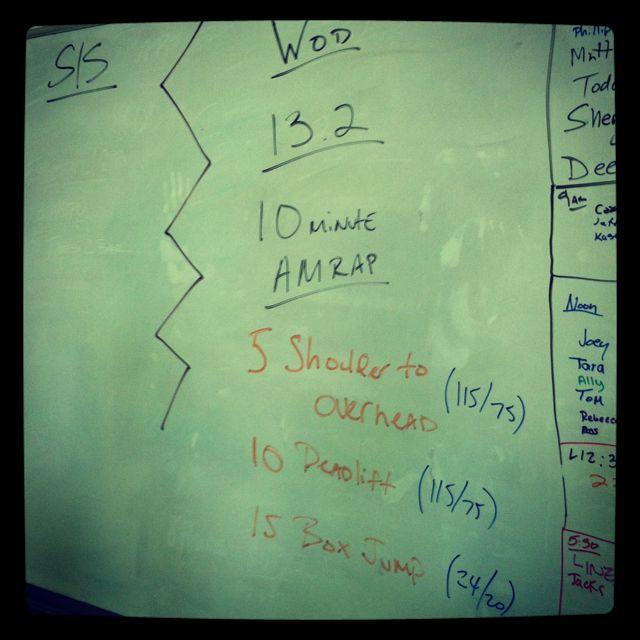 S/S
WOD
13.2
10 MINUTE
AMRAP
5 Shoulder to
overhead (115/75)
10 Deadlift (115/75)
15 Box Jump (24/20)
Phillip
Matt
Todd
She
Dee
9 AM
Noon
Joey
Tara
Ally
Tom
Rebecca
5:30
LINE
Jacks